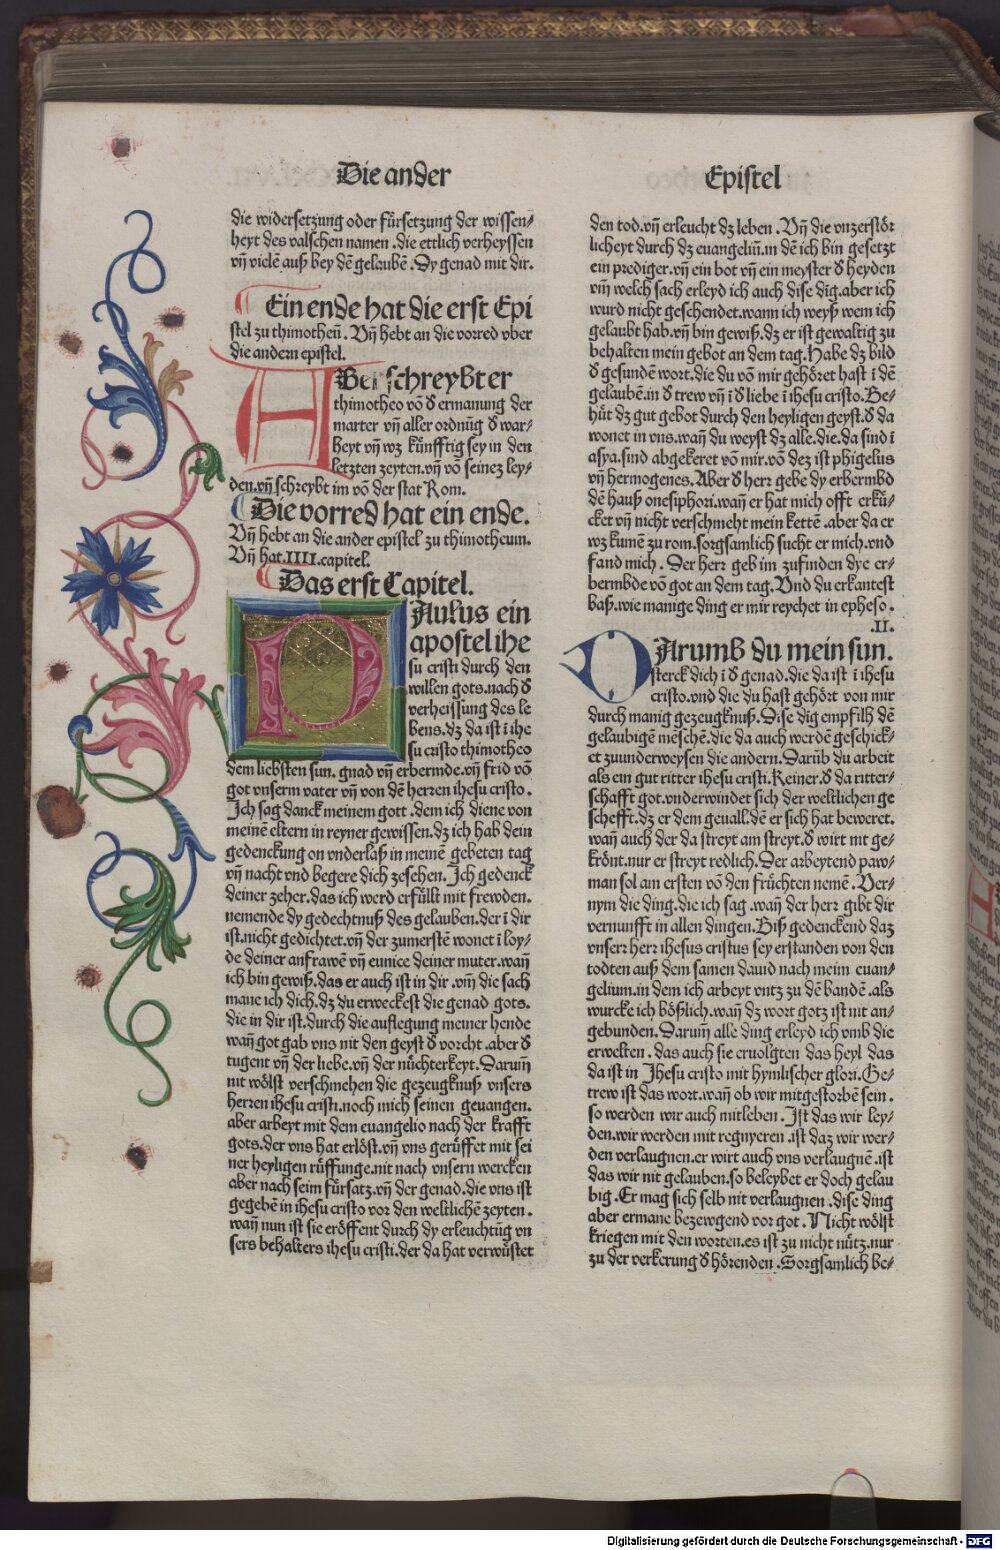 Die ander
Epistel
die widersetzung oder fürsetzung der wissen⸗
heyt des valschen namen .die ettlich verheyssen
vñ vielē auß bey dē gelaubē .Dy genad mit dir.
Ein ende hat die erst Epi
stel zu thimotheū. Vñ hebt an die vorred vber
die andern epistel.
HBer schreybt er
thimotheo vō d ermanung der
marter vñ aller ordnūg d war⸗
heyt vñ wz künfftig sey in den
letzten zeyten.vñ vō seinez ley⸗
den.vñ schreybt im vō der stat Rom.
Die vorred hat ein ende.
Vñ hebt an die ander epistel zu thimotheum.
Vñ hat.IIII.capitel.
Das erst Capitel.
PAulus ein
apostel ihe
su cristi durch den
willen gots.nach d
verheissung des le
bens.dz da ist ī ihe
su cristo thimotheo
dem liebsten sun. gnad vñ erbermde.vñ frid vō
got vnserm vater vñ von dē herren ihesu cristo.
Ich sag danck meinem gott .dem ich diene von
meinē eltern in reyner gewissen.dz ich hab dein
gedenckung on vnderlaß in meinē gebeten tag
vñ nacht vnd begere dich zesehen. Ich gedenck
deiner zeher.das ich werd erfüllt mit frewden.
nemende dy gedechtnuß des gelauben.der ī dir
ist.nicht gedichtet.vñ der zumerstē wonet ī loy⸗
de deiner anfrawē vñ eunice deiner muter.wañ
ich bin gewiß.das er auch ist in dir .vm̄ die sach
mane ich dich.dz du erweckest die genad gots.
die in dir ist.durch die auflegung meiner hende
wañ got gab vns nit den geyst d vorcht .aber d
tugent vñ der liebe.vñ der nüchterkeyt.Darum̄
nit wölst verschmehen die gezeugknuß vnsers
herren ihesu cristi.noch mich seinen geuangen.
aber arbeyt mit dem euangelio nach der krafft
gots.der vns hat erlöst.vñ vns gerüffet mit sei
ner heyligen rüffunge.nit nach vnsern wercken
aber nach seim fürsatz.vñ der genad.die vns ist
gegebē in ihesu cristo vor den weltlichē zeyten.
wañ nun ist sie eröffent durch dy erleuchtūg vn
sers behalters ihesu cristi.der da hat verwüstet
den tod.vñ erleucht dz leben .Vñ die vnzerstör
licheyt durch dz euangeliū.in dē ich bin gesetzt
ein prediger.vñ ein bot vñ ein meyster d heyden
vm̄ welch sach erleyd ich auch dise dīg.aber ich
wurd nicht geschendet.wann ich weyß wem ich
gelaubt hab.vñ bin gewiß.dz er ist gewaltig zu
behalten mein gebot an dem tag.Habe dz bild
d gesundē wort.die du vō mir gehöret hast ī dē
gelaubē.in d trew vñ ī d liebe ī ihesu cristo.Be⸗
hüt dz gut gebot durch den heyligen geyst.d da
wonet in vns.wañ du weyst dz alle.die.da sind ī
asya.sind abgekeret vō mir.vō dez ist phigelus
vñ hermogenes. Aber d herr gebe dy erbermbd
dē hauß onesiphori.wañ er hat mich offt erkü⸗
cket vñ nicht verschmeht mein kettē .aber da er
wz kumē zu rom.sorgsamlich sucht er mich.vnd
fand mich . Der herr geb im zufinden dye er⸗
bermbde vō got an dem tag.Vnd du erkantest
baß.wie manige ding er mir reychet in epheso.
.II.
DArumb du mein sun.
sterck dich ī d genad.die da ist ī ihesu
cristo.vnd die du hast gehört von mir
durch manig gezeugknuß.Dise dīg empfilh dē
gelaubigē mēschē.die da auch werdē geschick⸗
et zuunderweysen die andern.Darūb du arbeit
als ein gut ritter ihesu cristi.Keiner.d da ritter⸗
schafft got.vnderwindet sich der weltlichen ge
schefft.dz er dem geuall.dē er sich hat beweret.
wañ auch der da streyt am streyt.d wirt nit ge⸗
krönt.nur er streyt redlich.Der arbeytend paw⸗
man sol am ersten vō den früchten nemē .Ver⸗
nym die ding.die ich sag .wañ der herr gibt dir
vernunfft in allen dingen.Biß gedenckend daz
vnser herr ihesus cristus sey erstanden von den
todten auß dem samen dauid nach mein euan⸗
gelium.in dem ich arbeyt vntz zu dē bandē .als
wurcke ich bößlich.wañ dz wort gotz ist nit an⸗
gebunden.Darum̄ alle ding erleyd ich vmb die
erwelten .das auch sie eruolgten das heyl das
da ist in Ihesu cristo mit hymlischer glori.Ge⸗
trew ist das wort.wañ ob wir mitgestorbē sein.
so werden wir auch mitleben .Ist das wir ley⸗
den.wir werden mit regnyeren .ist daz wir wer⸗
den verlaugnen.er wirt auch vns verlaugnē .ist
das wir nit gelauben.so beleybet er doch gelau
big .Er mag sich selb nit verlaugnen .dise ding
aber ermane bezewgend vor got . Nicht wölst
kriegen mit den worten.es ist zu nicht nütz.nur
zu der verkerung d hörenden .Sorgsamlich be⸗
Digitalisierung gefördert durch die Deutsche Forschungsgemeinschaft - DFG